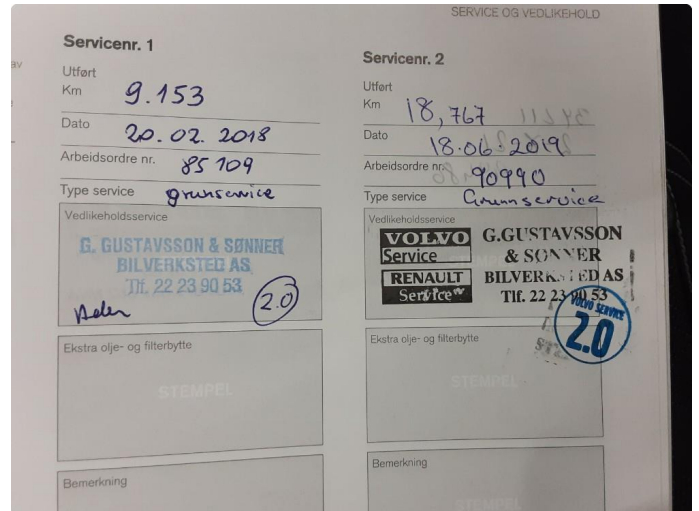 SERVICE OG VEDLIKEHOLD
Servicenr. 1
Utført
Km 9.153
Dato 20.02.2018
Arbeidsordre nr. 85109
Type service grunservice
Vedlikeholdsservice
G. GUSTAVSSON & SØNNER
BILVERKSTED AS
Tlf. 22 23 90 53
2.0
Ekstra olje- og filterbytte
STEMPEL
Bemerkning
Servicenr. 2
Utført
Km 18,767
Dato 18.06.2019
Arbeidsordre nr. 90990
Type service Grunnservice
Vedlikeholdsservice
VOLVO
Service
RENAULT
Service
G.GUSTAVSSON
& SØNNER
BILVERKSTED AS
Tlf. 22 23 90 53
VOLVO SERVICE
2.0
Ekstra olje- og filterbytte
STEMPEL
Bemerkning
STEMPEL